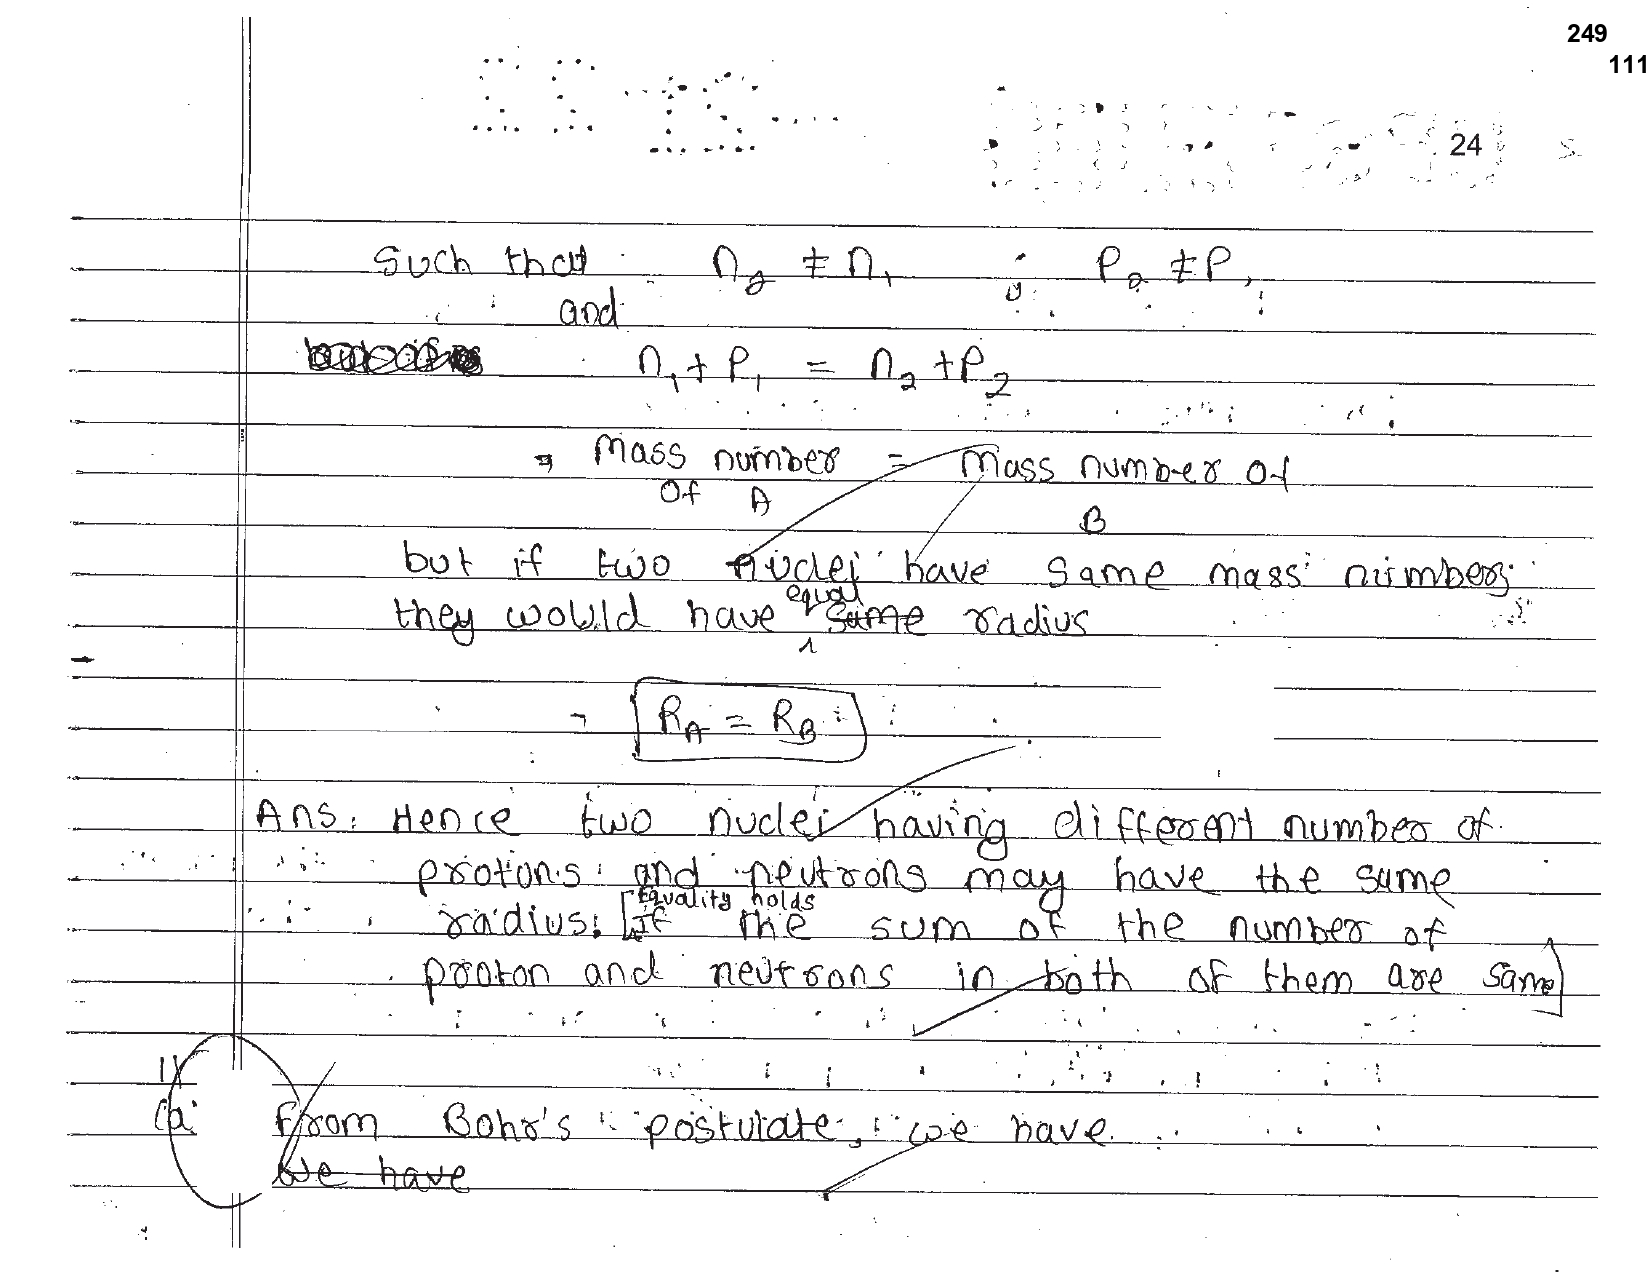 249
111
24
Such that n₂ ≠ n₁ ; P₂ ≠ P₁
and
n₁ + P₁ = n₂ + P₂
⇒ Mass number = Mass number of
of A B
but if two nuclei have same mass numbers
they would have equal same radius
⇒ R_A = R_B
Ans: Hence two nuclei having different number of
protons and neutrons may have the same
radius. [Equality holds
if the sum of the number of
proton and neutrons in both of them are same]
11
(a) From Bohr's postulate, we have
We have